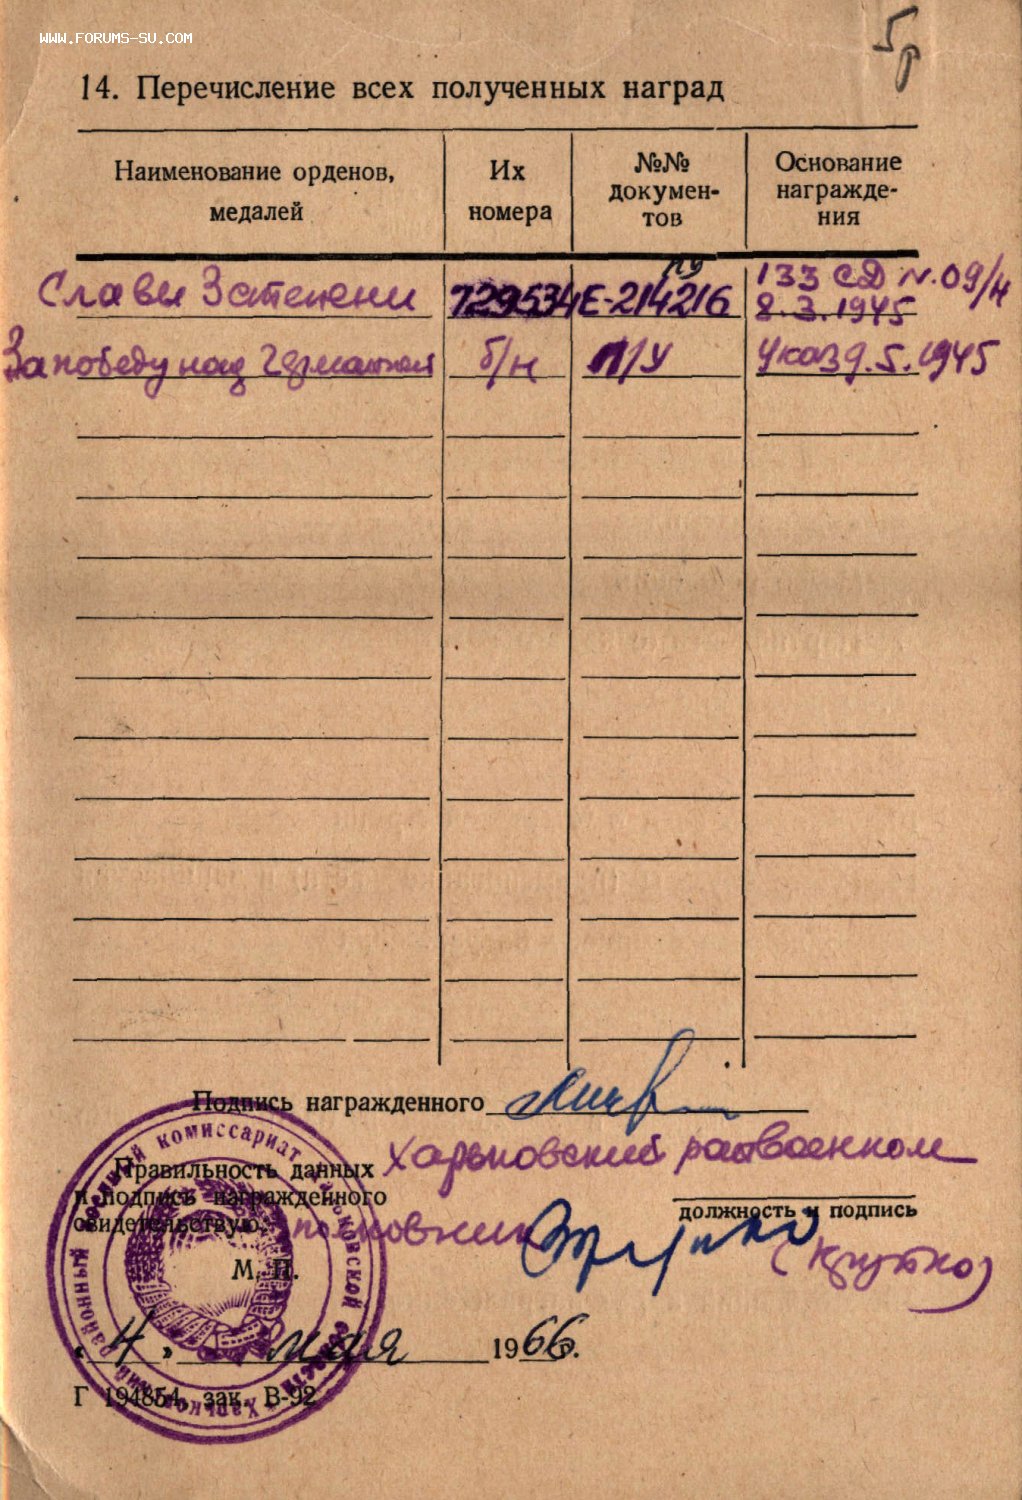 WWW.FORUMS-SU.COM
5р
14. Перечисление всех полученных наград
Наименование орденов, медалей
Их номера
№№ докумен-тов
Основание награжде-ния
Славы 3 степени 729534 Е-214216 133 СД N.09/н
8.3.1945
За победу над Германией б/н п/у Указ 9.5.1945
Подпись награжденного
Правильность данных
и подпись награжденного
свидетельствую:
Харьковский райвоенком
должность и подпись
полковник
(Крутко)
М. П.
«4» мая 1966.
Г 194854, зак. В-92
Харьковский районный военный комиссариат Харьковской области